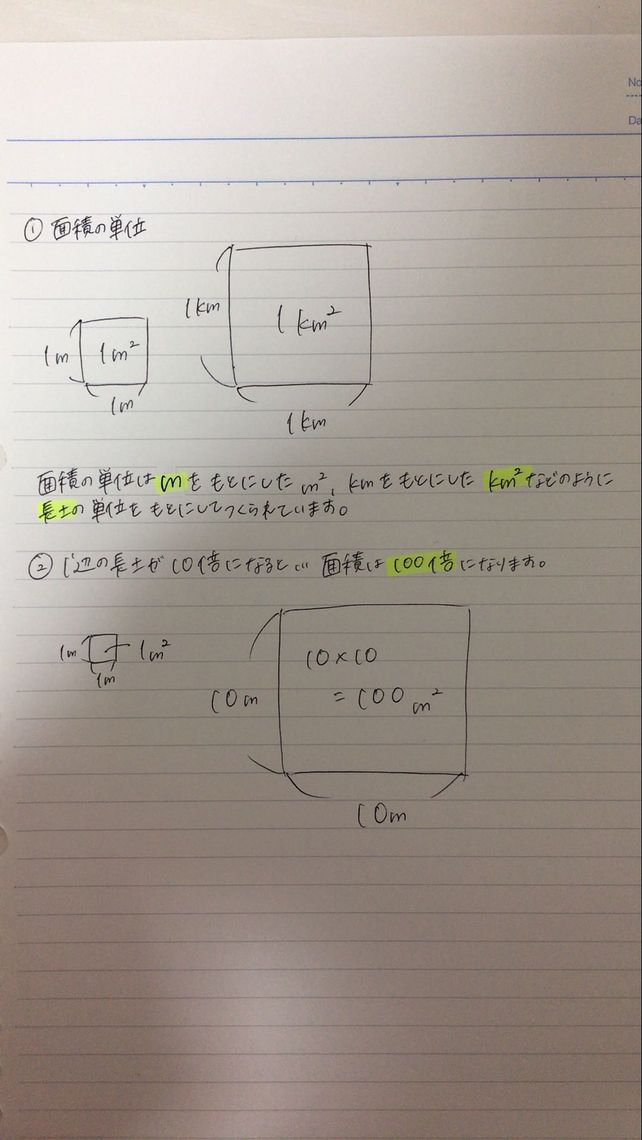 No
Da
① 面積の単位
1km
1km²
1m
1m²
1m
1km
面積の単位はmをもとにしたm²、kmをもとにしたkm²などのように
長さの単位をもとにしてつくられています。
② 1辺の長さが10倍になると… 面積は100倍になります。
1m
1m²
1m
10×10
10m
=100m²
10m